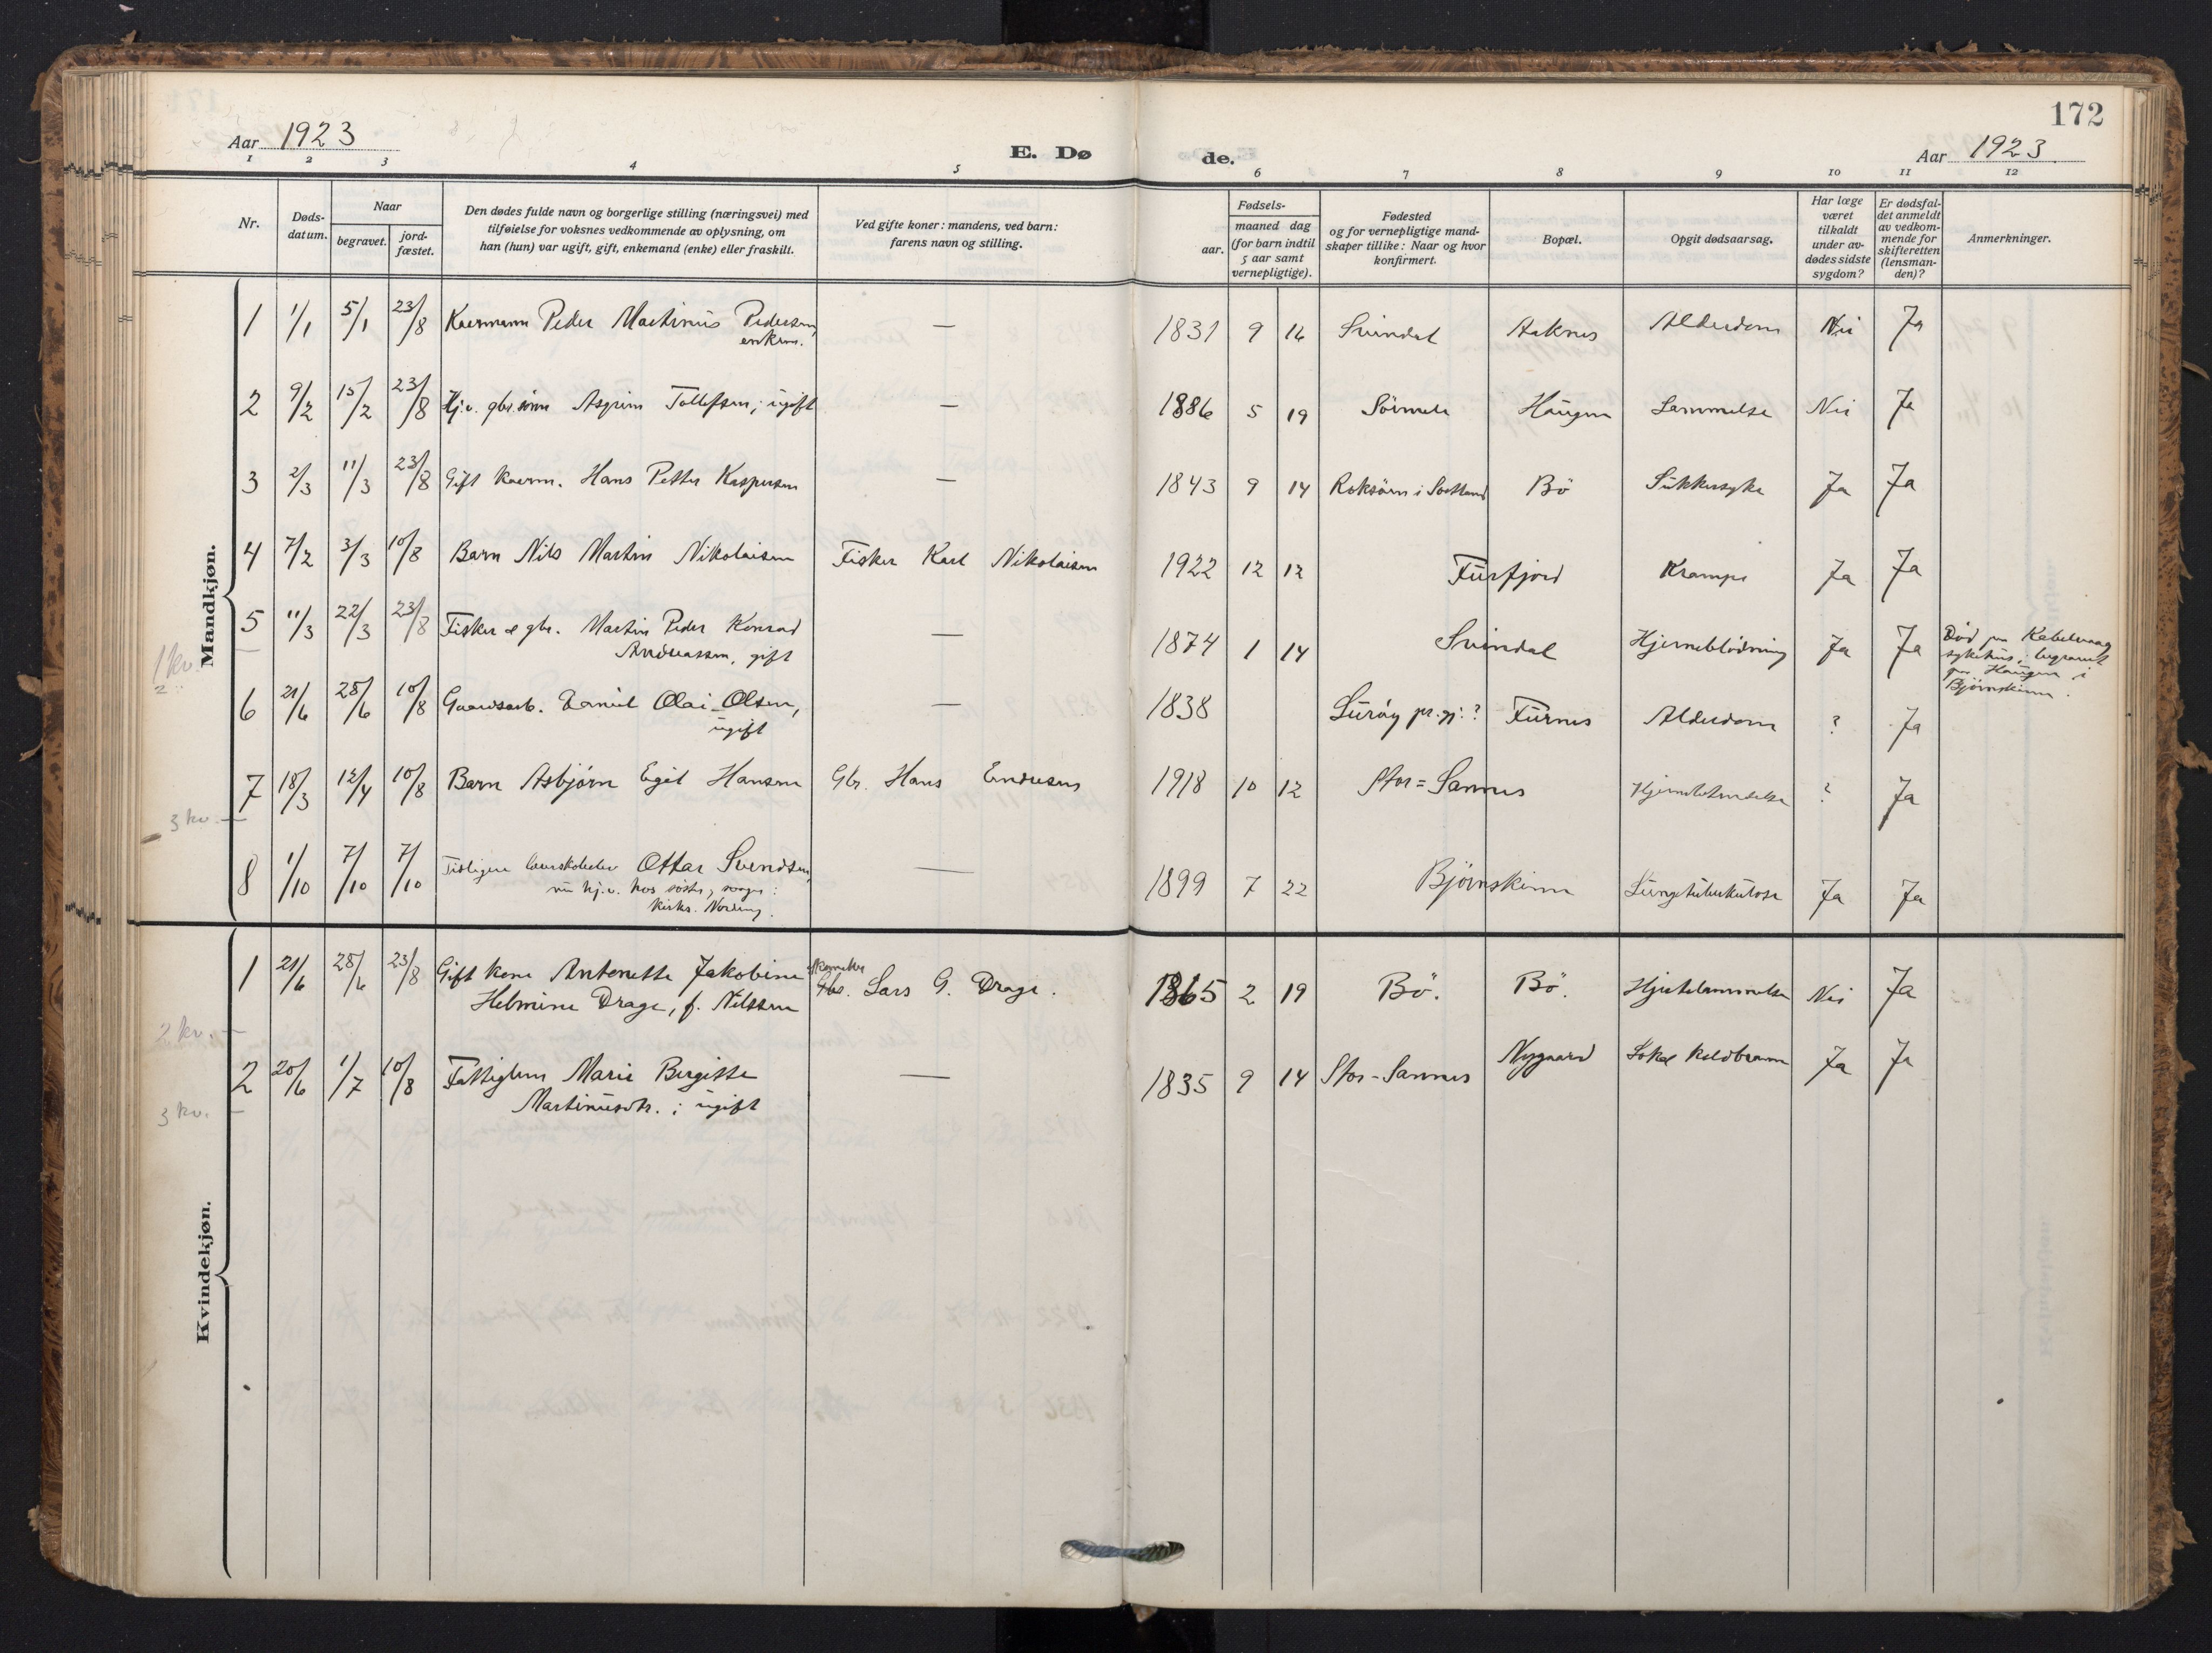 172
Aar 1923
E. Dø
de.
Aar 1923.
1 2 3 4 5 6 7 8 9 10 11 12
Nr.
Døds-
datum.
Naar
begravet.
jord-
fæstet.
Den dødes fulde navn og borgerlige stilling (næringsvei) med
tilføielse for voksnes vedkommende av oplysning, om
han (hun) var ugift, gift, enkemand (enke) eller fraskilt.
Ved gifte koner: mandens, ved barn:
farens navn og stilling.
Fødsels-
aar.
maaned dag
(for barn indtil
5 aar samt
vernepligtige).
Fødested
og for vernepligtige mand-
skaper tillike: Naar og hvor
konfirmert.
Bopæl.
Opgit dødsaarsag.
Har læge
været
tilkaldt
under av-
dødes sidste
sygdom?
Er dødsfal-
det anmeldt
av vedkom-
mende for
skifteretten
(lensman-
den)?
Anmerkninger.
Mandkjøn.
1 1/1 5/1 23/8 Kaarmann Peder Martinus Pedersen, — 1831 9 16 Svindal Aaknes Alderdom Nei Ja
enkem.
2 9/2 15/2 23/8 Hj.v. gbr.sønn Asgrim Tollefsen; ugift — 1886 5 19 Sörmela Haugen Lammelse Nei Ja
3 2/3 11/3 23/8 Gift kaarm. Hans Petter Kaspersen — 1843 9 14 i Bö Sukkersyke Ja Ja
4 7/2 3/3 10/8 Barn Nils Martin Nikolaisen Fisker Karl Nikolaisen 1922 12 12 Furfjord Krampe Ja Ja
5 11/3 22/3 23/8 Fisker & gbr. Martin Peder Konrad — 1874 1 14 Svindal Hjerneblödning Ja Ja Död paa Kabelvaag
Andreassen, gift
sykehus; begravet
paa Haugen i
Bjørnskinn.
1 kv.
2
6 21/6 28/6 10/8 Gaardsarb. Daniel Olai Olsen, — 1838 Luröy pr.gj.? Furnes Alderdom ? Ja
ugift
7 18/3 12/4 10/8 Barn Asbjørn Egil Hansen Gbr. Hans Endresen 1918 10 12 Stor=Sannes Hjernebetendelse ? Ja
3 kv. —
8 1/10 7/10 7/10 Tidligere Ottar Svendsen, — 1899 7 22 Bjørnskinn Lungetuberkulose Ja Ja
nu hj.v. hos søster, svoger:
kirks. Nording.
Kvindekjøn.
1 21/6 28/6 23/8 Gift kone Antonette Jakobine Gbr. Lars G. Drage. 1865 2 19 Bö. Bö. Hjertelammelse Nei Ja
Helmine Drage, f. Nilssen
2 kv. —
2 20/6 1/7 10/8 Fattiglem Marie Birgitte — 1835 9 14 Stor-Sannes Nygaard Lokal koldbrann Ja Ja
Martinusdtr.; ugift
3 kv. —